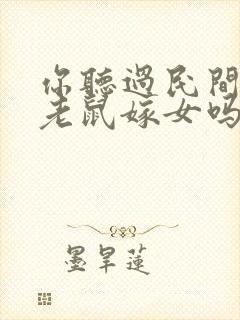 你聽過民間
老鼠嫁女嗎
墨旱蓮